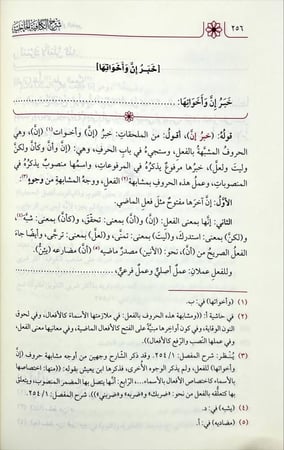 شرح الكافية للخبيصي
٢٥٦
[خَبَرُ إِنَّ وَأَخَوَاتِهَا]
خَبَرُ إِنَّ وَأَخَوَاتِهَا:
قولُهُ: (خبرُ إنَّ)، أقولُ: من الملحقاتِ: خبرُ (إنَّ) وأخواتِ(١) (إنَّ)، وهي
الحروف المشبَّهةُ بالفعلِ، وستجيءُ في بابِ الحرفِ، وهي: (إنَّ وأنَّ وكأنَّ ولكنَّ
وليتَ ولعلَّ)، خبرُها مرفوعٌ يذكرُهُ في المرفوعاتِ، واسمُها منصوبٌ يذكرُهُ في
المنصوباتِ، وعملُ هذه الحروف بمشابهةِ(٢) الفعلِ، ووجهُ المشابهةِ من وجوهٍ(٣):
الأوَّلُ: إنَّ آخرَها مفتوحٌ مثلُ فعلِ الماضي.
الثاني: إنَّها بمعنى الفعلِ: (إنَّ) و(أنَّ) بمعنى: تحقّقَ، و(كأنَّ) بمعنى: شبَّهَ(٤)
و(لكنَّ) بمعنى: استدركَ، و(ليتَ) بمعنى: تمنَّى، و(لعلَّ) بمعنى: ترجَّى، وأيضًا جاءَ
الفعلُ الصريحُ من (أنَّ)، نحو: (الأنين) مصدر ماضيه(٥) (أنَّ) مضارعه (يئنُّ).
وللفعلِ عملانِ: عملٌ أصليٌّ وعملٌ فرعيٌّ،
(١) (وأخواتها) في: ب.
(٢) في حاشية أ: ((ومشابهة هذه الحروف بالفعل: في ملازمتها الأسماء كالأفعال، وفي لحوق
نون الوقاية، وفي كون أواخرها مبنيَّة على الفتح كالأفعال الماضية، وفي معانيها معنى الفعل،
وفي عملها النَّصب والرَّفع كالأفعال)).
(٣) يُنظر: شرح المفصل: ٢٥٤/١. وقد ذكر الشَّارح وجهين من أوجه مشابهة حروف (إنَّ
وأخواتها) للفعل، ولم يذكر الوجوه الأُخرى، فذكرها ابن يعيش بقوله: ((منها: اختصاصها
بالأسماء كاختصاص الأفعال بالأسماء... الرابع: أنَّها يتصل بها المضمر المنصوب، ويتعلق
بها كتعلُّقه بالفعل من نحو: «ضربك» و«ضربه» و«ضربني»)). شرح المفصل: ٢٥٤/١.
(٤) (يشبه) في: د.
(٥) (مضاديه) في: أ.